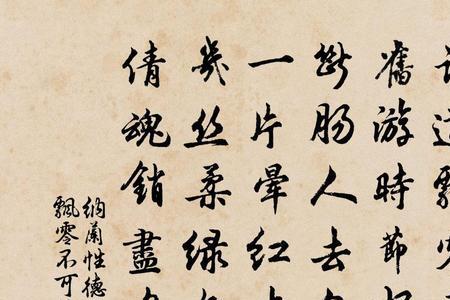 舊游時節
斷腸人去
一片暈紅
幾絲柔綠
倩魂銷盡
納蘭性德
飄零不可